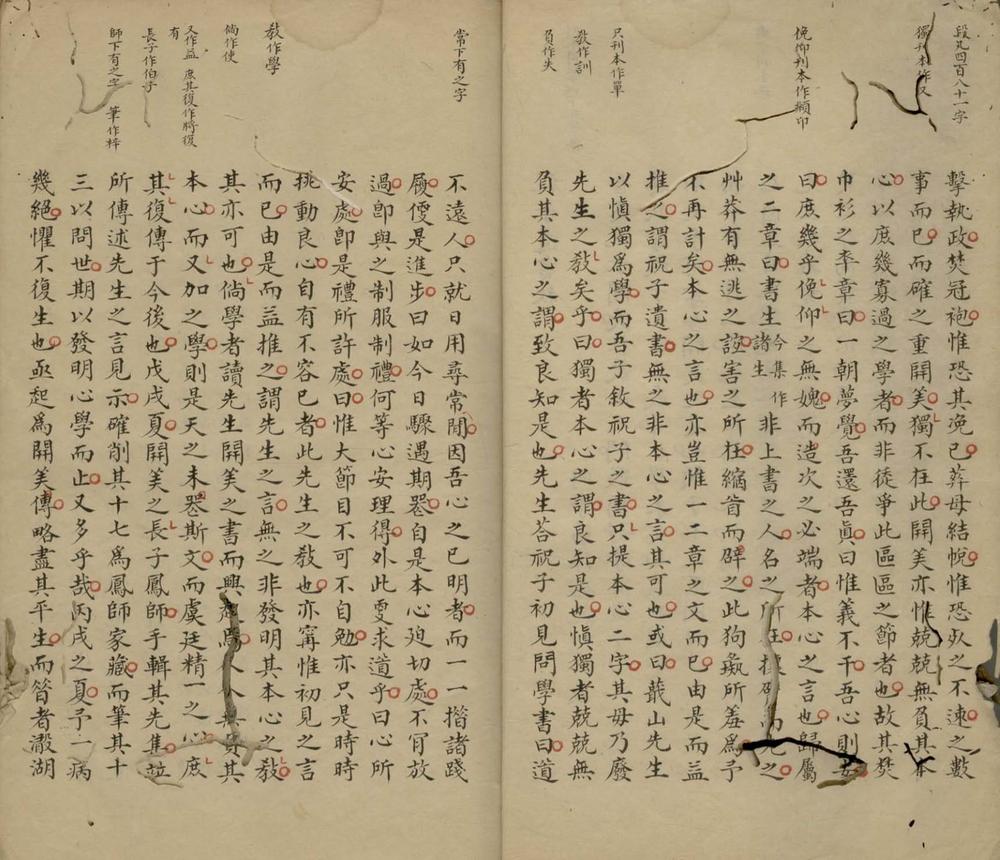 段凡四百八十一字
獨刊本作又
俛仰刋本作頫卬
只刊本作單
敎作訓
負作失
擊執政焚冠袍惟恐其浼已葬母結帨惟恐死之不速之數
事而已而確之重開美獨不在此開美亦惟兢兢無負其本
心以庶幾寡過之學者而非徒爭此區區之節者也故其焚
巾衫之卒章曰一朝夢覺吾還吾眞曰惟義不干吾心則安
曰庶幾乎俛仰之無媿而造次之必端者本心之言也歸屬
之二章曰書生今集作諸生非上書之人名之所在
艸莽有無逃之誼害之所在縮首而辟之此狗彘所羞爲予
不再計矣本心之言也亦豈惟一二章之文而已由是而益
推之謂祝子遺書無之非本心之言其可也或曰蕺山先生
以愼獨爲學而吾子敘祝子之書只提本心二字其毋乃廢
先生之敎矣乎曰獨者本心之謂良知是也愼獨者兢兢無
負其本心之謂致良知是也先生荅祝子初見問學書曰道
常下有之字
敎作學
倘作使
又作益 庶其復作將復有
長子作伯子
師下有之字 筆作梓
不遠人只就日用尋常間因吾心之已明者而一一揩諸踐
履便是進步曰如今日驟遇期器自是本心廹切處不肎放
過卽與之制服制禮何等心安理得外此更求道乎曰心所
安處卽是禮所許處曰惟大節目不可不自勉亦只是時時
挑動良心自有不容已者此先生之敎也亦寗惟初見之言
而已由是而益推之謂先生之言無之非發明其本心之敎
其亦可也倘學者讀先生開美之書而興起焉人人無負其
本心而又加之學則是天之未喪斯文而虞廷精一之心庶
其復傳于今後也戊戌夏開美之長子鳳師手輯其先集竝
所傳述先生之言見示確削其十七爲鳳師家藏而筆其十
三以問世期以發明心學而止又多乎哉丙戌之夏予一病
幾絕懼不復生也亟起爲開美傳略盡其平生而筓者澉湖